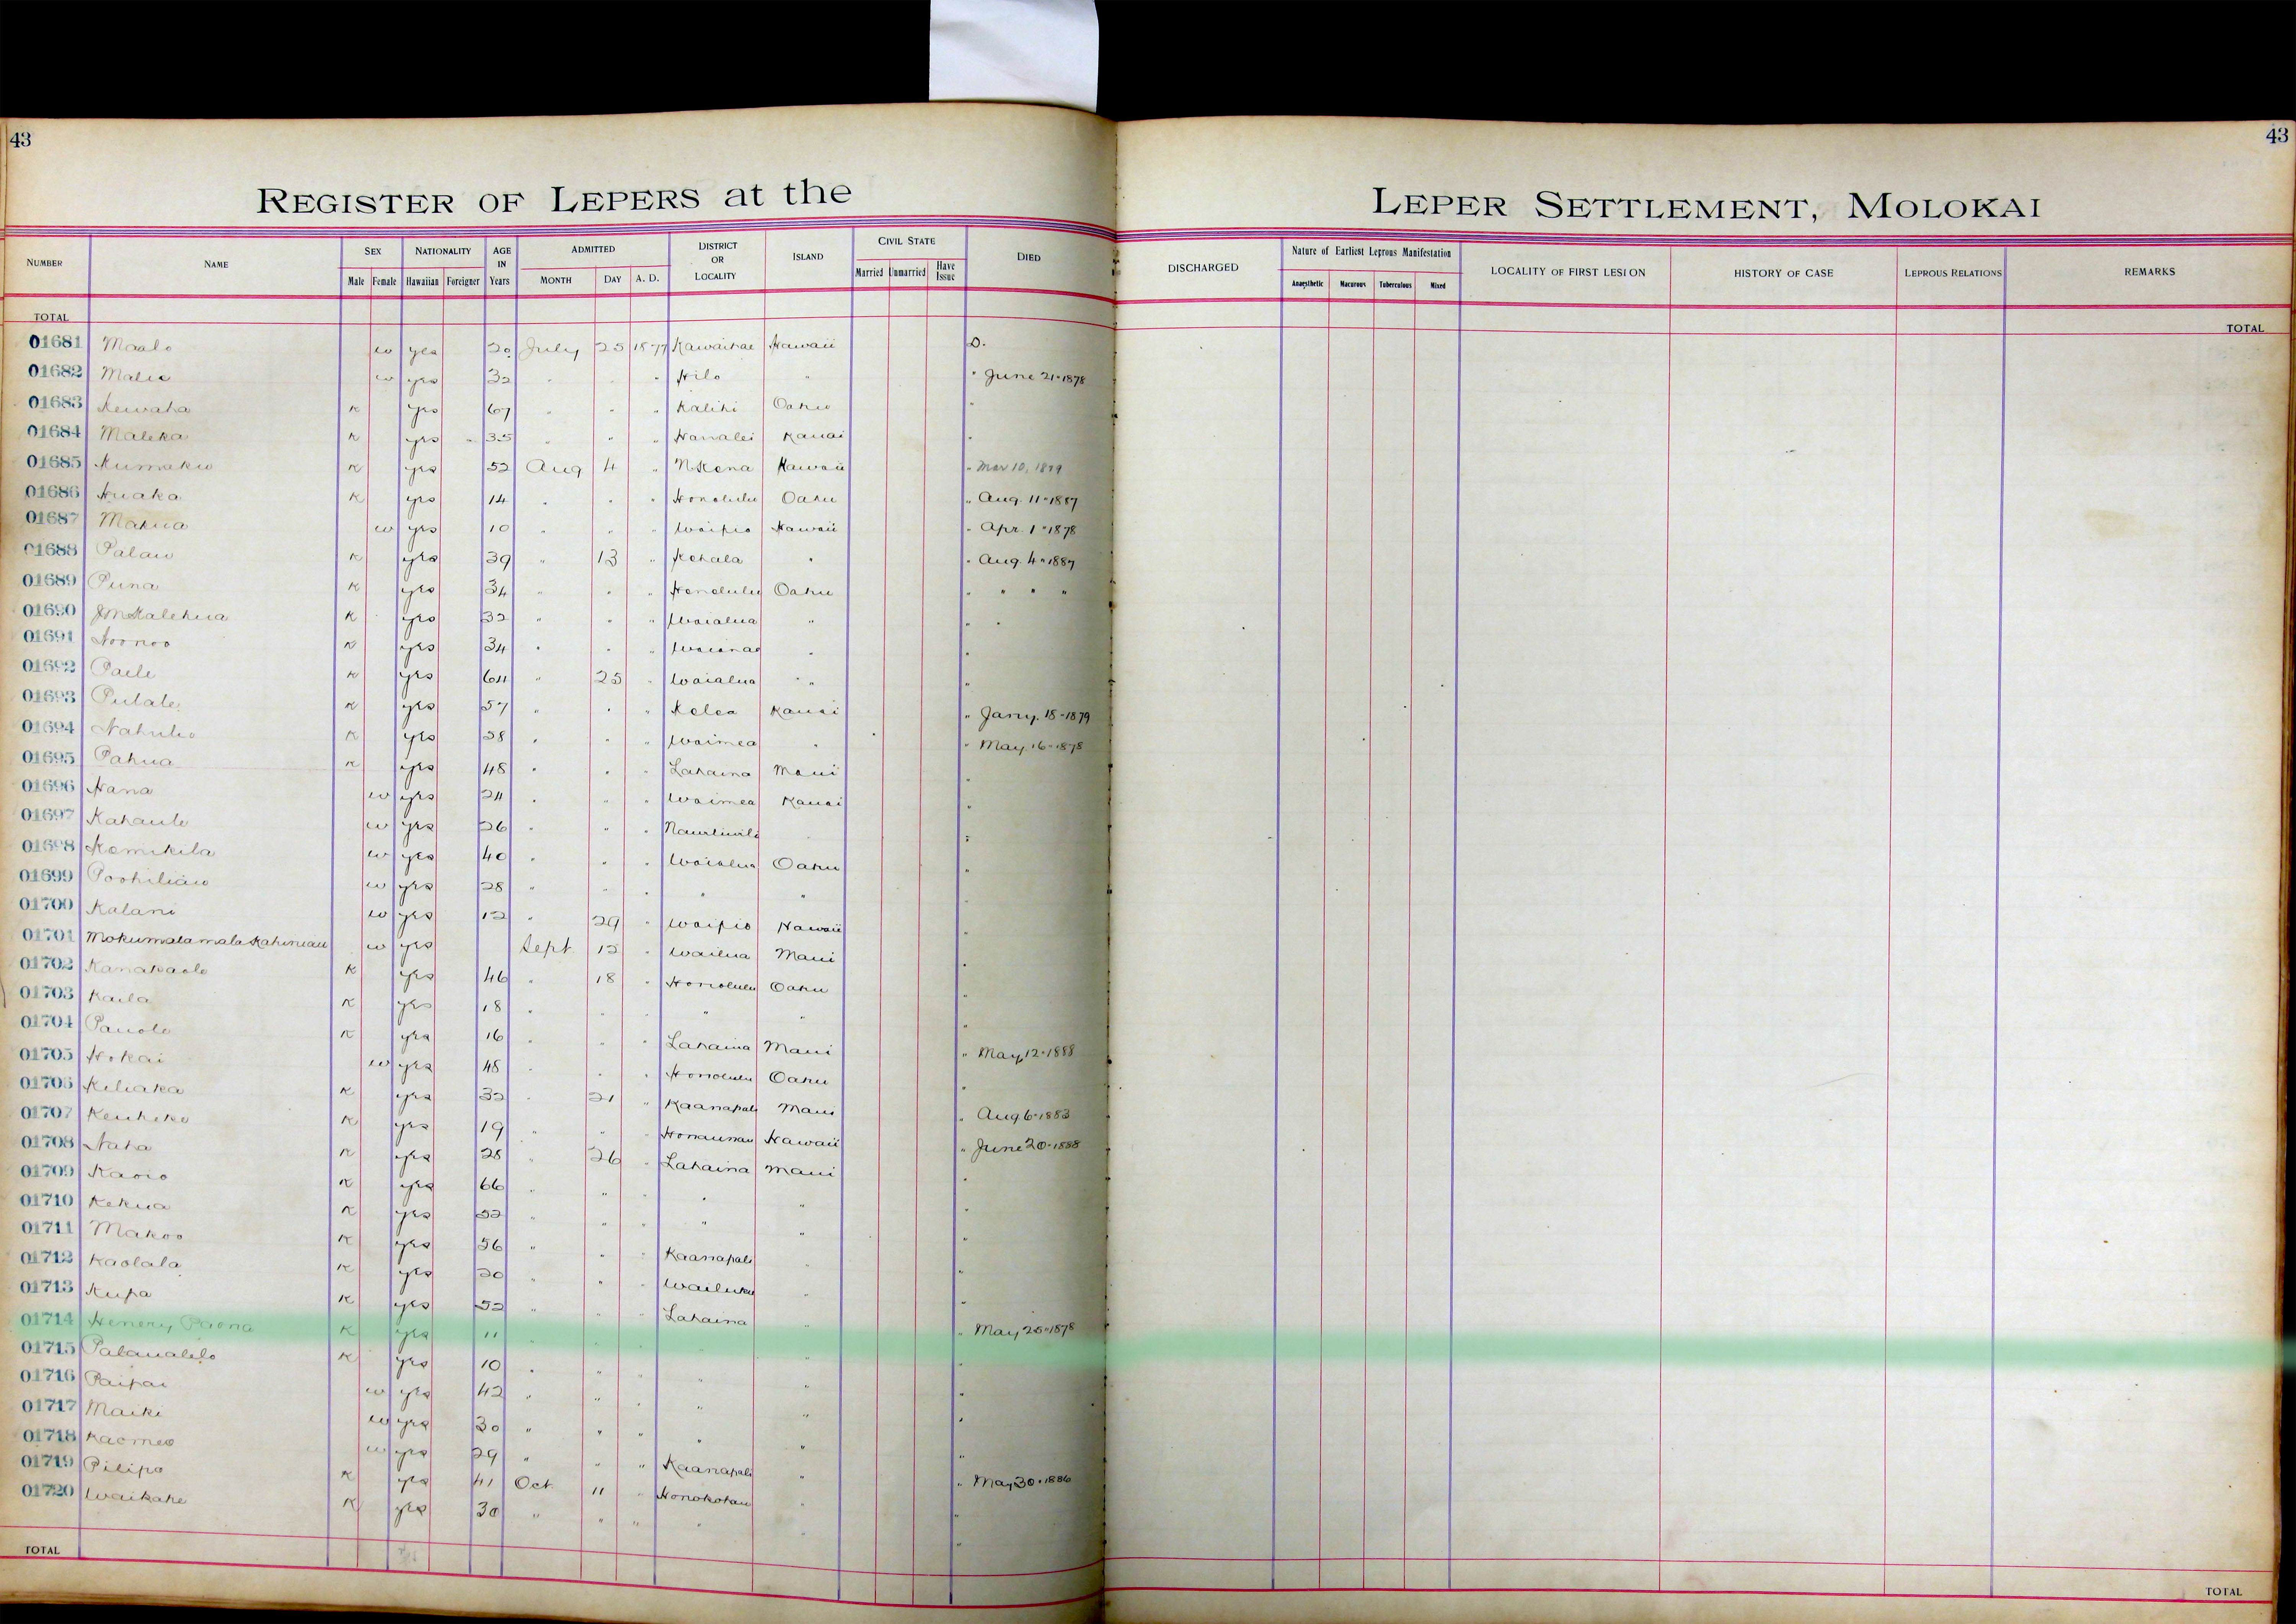 43
43
REGISTER OF LEPERS at the
LEPER SETTLEMENT, MOLOKAI
NUMBER NAME SEX NATIONALITY AGE IN Years ADMITTED DISTRICT OR LOCALITY ISLAND CIVIL STATE DIED DISCHARGED Nature of Earliest Leprous Manifestation LOCALITY OF FIRST LESION HISTORY OF CASE LEPROUS RELATIONS REMARKS
Male Female Hawaiian Foreigner MONTH DAY A. D. Married Unmarried Have Issue Anaesthetic Macurous Tuberculous Mixed
TOTAL TOTAL
01681 Maalo w yes 20 July 25 1877 Kawaihae Hawaii D.
01682 w yes 32 " " " Hilo " " June 21-1878
01683 Kewaha K yes 67 " " " Kalihi Oahu "
01684 Maleka K yes 35 " " " Hanalei Kauai "
01685 Kumaku K yes 52 Aug 4 " N Kona Hawaii " Mar 10, 1879
01686 Huaka K yes 14 " " " Honolulu Oahu " Aug. 11-1887
01687 Mahua w yes 10 " " " Waipio Hawaii " Apr. 1-1878
01688 Palau K yes 39 " 13 " Kohala " " Aug. 4-1887
01689 Puna K yes 34 " " " Honolulu Oahu " " " "
01690 K yes 32 " " " Waialua " " "
01691 Noonoo K yes 34 " " " Waianae " "
01692 Paele K yes 64 " 25 " Waialua " " "
01693 Pulale K yes 57 " " " Kolea Kauai " Jany. 18-1879
01694 K yes 28 " " " Waimea " " May. 16-1878
01695 Pahua K yes 48 " " " Lahaina Maui "
01696 Hana w yes 24 " " " Waimea Kauai "
01697 Kahaule w yes 26 " " " Nawiliwili "
01698 Kamikila w yes 40 " " " Waialua Oahu "
01699 Poohiliau w yes 28 " " " " "
01700 Kalani w yes 12 " 29 " Waipio Hawaii
01701 Mokumalamala Kahiniau w yes Sept 12 " Wailua Maui "
01702 Kanakaole K yes 46 " 18 " Honolulu Oahu "
01703 Kaila K yes 18 " " " " " "
01704 Pauole K yes 16 " " " Lahaina Maui " May 12-1888
01705 Hokai w yes 48 " " " Honolulu Oahu "
01706 Keliaka K yes 32 " 21 " Kaanapali Maui " Aug 6-1883
01707 K yes 19 " " " Honaunau Hawaii " June 20-1888
01708 Naha K yes 28 " 26 " Lahaina Maui "
01709 K yes 66 " " " " " "
01710 Kekua K yes 52 " " " " " "
01711 Makoo K yes 56 " " " Kaanapali " "
01712 Kaolala K yes 20 " " " Wailuku " "
01713 Kupa K yes 52 " " " Lahaina " " May 25-1878
01714 Henery Paona K yes 11 " " " " " "
01715 Palaualelo K yes 10 " " " " " "
01716 Paipai w yes 42 " " " " " "
01717 Maiki w yes 30 " " " " " "
01718 Kaomea w yes 29 " " " Kaanapali " " May 30-1886
01719 Pilipo K yes 41 Oct 11 " Honokohau " "
01720 Waikahe K yes 30 " " " " " "
TOTAL TOTAL